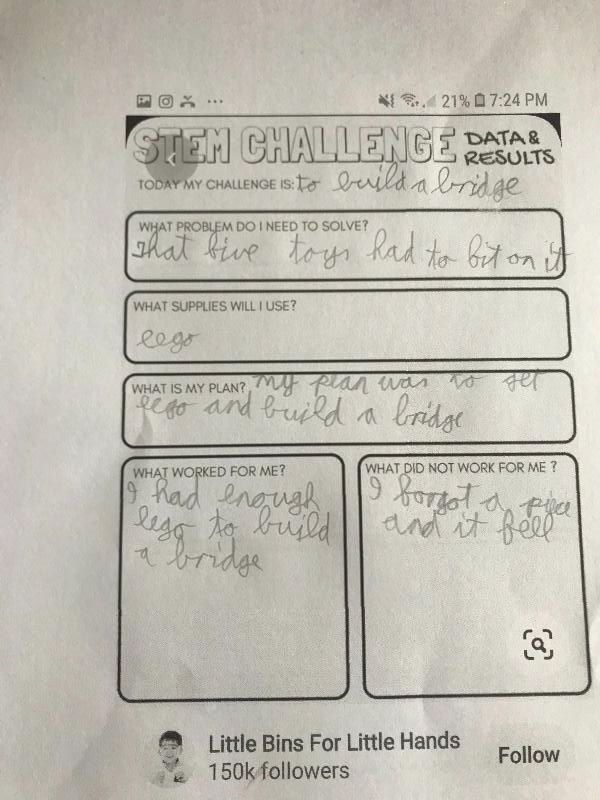 21% 7:24 PM
STEM CHALLENGE DATA &
RESULTS
TODAY MY CHALLENGE IS: to build a bridge
WHAT PROBLEM DO I NEED TO SOLVE?
That five toys had to fit on it
WHAT SUPPLIES WILL I USE?
lego
WHAT IS MY PLAN? my plan was to get
lego and build a bridge
WHAT WORKED FOR ME?
I had enough
lego to build
a bridge
WHAT DID NOT WORK FOR ME ?
I forgot a piece
and it fell
Little Bins For Little Hands
150k followers
Follow